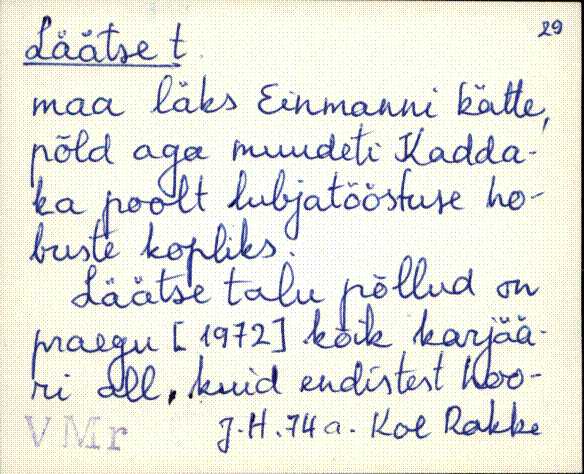 29
Läätse t.
maa läks Einmanni kätte,
põld aga muudeti Kadda-
ka poolt lubjatööstuse ho-
buste kopliks.
Läätse talu põllud on
praegu [1972] kõik karjää-
ri all, kuid endistest hoo-
VMr J.H. 74 a. Koe Rakke